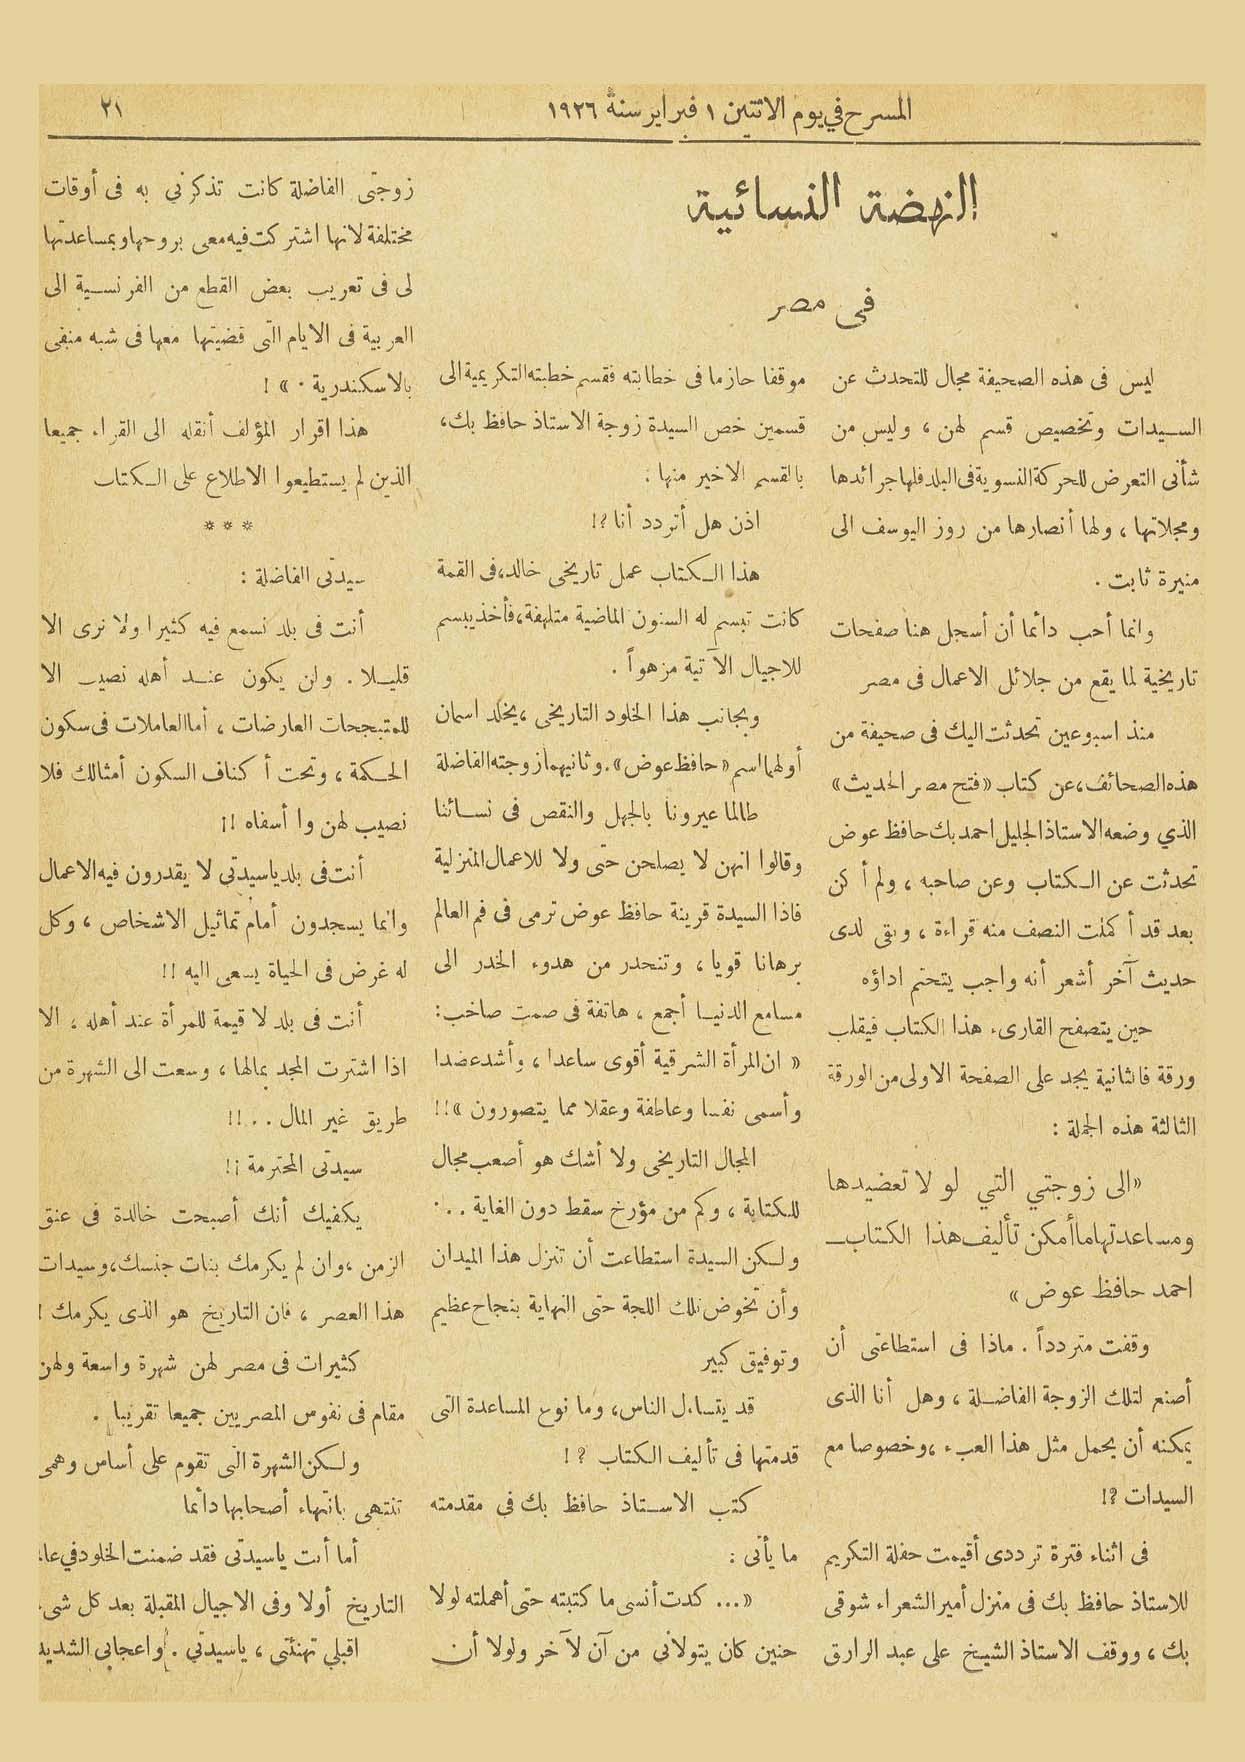 المسرح في يوم الاثنين ١ فبراير سنة ١٩٢٦
٢١
النهضة النسائية
فى مصر
ليس فى هذه الصحيفة مجال للتحدث عن
السيدات وتخصيص قسم لهن ، وليس من
شأنى التعرض للحركة النسوية فى البلد فلها جرائدها
ومجلاتها ، ولها أنصارها من روز اليوسف الى
منيرة ثابت .
وانما أحب دائما أن أسجل هنا صفحات
تاريخية لما يقع من جلائل الاعمال فى مصر
منذ اسبوعين تحدثت اليك فى صحيفة من
هذه الصحائف ، عن كتاب « فتح مصر الحديث »
الذي وضعه الاستاذ الجليل احمد بك حافظ عوض
تحدثت عن الكتاب وعن صاحبه ، ولم أكن
بعد قد أكملت النصف منه قراءة ، وبقى لدى
حديث آخر أشعر أنه واجب يتحتم اداؤه
حين يتصفح القارىء هذا الكتاب فيقلب
ورقة فالثانية يجد على الصفحة الاولى من الورقة
الثالثة هذه الجملة :
« الى زوجتي التي لو لا تعضيدها
ومساعدتها ما أمكن تأليف هذا الكتاب ــ
احمد حافظ عوض »
وقفت متردداً . ماذا فى استطاعتى أن
أصنع لتلك الزوجة الفاضلة ، وهل أنا الذى
يمكنه أن يحمل مثل هذا العبء ، وخصوصا مع
السيدات ؟!
فى اثناء فترة ترددى أقيمت حفلة التكريم
للاستاذ حافظ بك فى منزل أمير الشعراء شوقى
بك ، ووقف الاستاذ الشيخ على عبد الرازق
موقفا حازما فى خطابته فقسم خطبته التكريمية الى
قسمين خص السيدة زوجة الاستاذ حافظ بك ،
بالقسم الاخير منها .
اذن هل أتردد أنا ؟!
هذا الكتاب عمل تاريخى خالد ، فى القمة
كانت تبسم له السنون الماضية متلهفة ، فأخذ يبسم
للاجيال الآتية مزهواً .
وبجانب هذا الخلود التاريخى ، يخلد اسمان
أولهما اسم « حافظ عوض » . وثانيهما زوجته الفاضلة
طالما عيرونا بالجهل والنقص فى نسائنا
وقالوا انهن لا يصلحن حتى ولا للاعمال المنزلية
فاذا السيدة قرينة حافظ عوض ترمى فى فم العالم
برهانا قويا ، وتنحدر من هدوء الخدر الى
مسامع الدنيا أجمع ، هاتفة فى صمت صاخب :
« ان المرأة الشرقية أقوى ساعدا ، وأشد عضدا
وأسمى نفسا وعاطفة وعقلا مما يتصورون » !!
المجال التاريخى ولا أشك هو أصعب مجال
للكتابة ، وكم من مؤرخ سقط دون الغاية . . .
ولكن السيدة استطاعت أن تنزل هذا الميدان
وأن تخوض تلك اللجة حتى النهاية بنجاح عظيم
وتوفيق كبير
قد يتساءل الناس ، وما نوع المساعدة التى
قدمتها فى تأليف الكتاب ؟ !
كتب الاستاذ حافظ بك في مقدمته
ما يأتى :
« ... كدت أنسى ما كتبته حتى أهملته لولا
حنين كان يتولانى من آن لآخر ولولا أن
زوجتى الفاضلة كانت تذكرنى به فى أوقات
مختلفة لانها اشتركت فيه معى بروحها وبمساعدتها
لى فى تعريب بعض القطع من الفرنسية الى
العربية فى الايام التى قضيتها معها فى شبه منفى
بالاسكندرية . » !
هذا اقرار المؤلف أنقله الى القراء جميعا
الذين لم يستطيعوا الاطلاع على الكتاب
* * *
سيدتى الفاضلة :
أنت فى بلد نسمع فيه كثيرا ولا نرى الا
قليلا . ولن يكون عند أهله نصيب الا
للمتبجحات العارضات ، أما العاملات فى سكون
الحكمة ، وتحت أكناف السكون أمثالك فلا
نصيب لهن وا أسفاه !!
أنت فى بلد ياسيدتى لا يقدرون فيه الاعمال
وانما يسجدون أمام تماثيل الاشخاص ، وكل
له غرض فى الحياة يسعى اليه !!
أنت فى بلد لا قيمة للمرأة عند أهله ، الا
اذا اشترت المجد بمالها ، وسعت الى الشهرة من
طريق غير المال . . !!
سيدتى المحترمة !!
يكفيك أنك أصبحت خالدة فى عنق
الزمن ، وان لم يكرمك بنات جنسك ، وسيدات
هذا العصر ، فان التاريخ هو الذى يكرمك !
كثيرات فى مصر لهن شهرة واسعة ولهن
مقام فى نفوس المصريين جميعا تقريبا .
ولكن الشهرة التى تقوم على أساس وهمى
تنتهى بانتهاء أصحابها دائما
أما أنت ياسيدتى فقد ضمنت الخلود في
التاريخ أولا وفى الاجيال المقبلة بعد كل شىء
اقبلي تهنئتى ، ياسيدتي . واعجابى الشديد